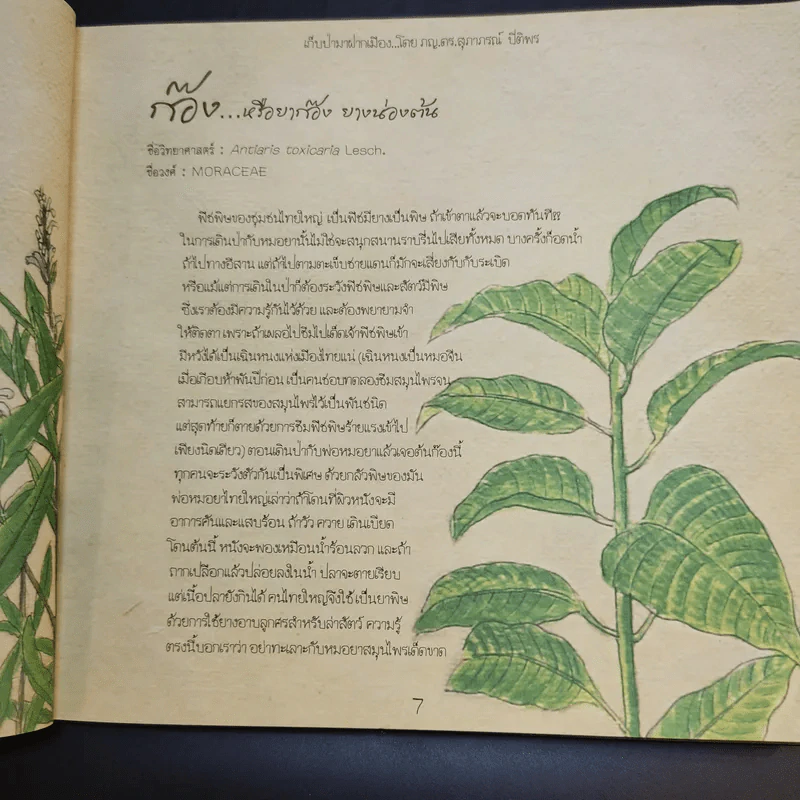 เก็บป่ามาฝากเมือง...โดย ภญ.ดร.สุภาภรณ์ ปิติพร
ก๊อง...หรือยาก๊อง ยางน่องต้น
ชื่อวิทยาศาสตร์ : Antiaris toxicaria Lesch.
ชื่อวงศ์ : MORACEAE
พืชพิษของชุมชนไทยใหญ่ เป็นพืชมียางเป็นพิษ ถ้าเข้าตาแล้วจะบอดทันที
ในการเดินป่ากับหมอยานั้นไม่ใช่จะสนุกสนานราบรื่นไปเสียทั้งหมด บางครั้งก็อดน้ำ
ถ้าไปทางอีสาน แต่ถ้าไปตามตะเข็บชายแดนก็มักจะเสี่ยงกับกับระเบิด
หรือแม้แต่การเดินในป่าก็ต้องระวังพืชพิษและสัตว์มีพิษ
ซึ่งเราต้องมีความรู้กันไว้ด้วย และต้องพยายามจำ
ให้ติดตา เพราะถ้าเผลอไปชิมไปเด็ดเจ้าพืชพิษเข้า
มีหวังได้เป็นเฉินหนงแห่งเมืองไทยแน่ (เฉินหนงเป็นหมอจีน
เมื่อเกือบห้าพันปีก่อน เป็นคนชอบทดลองชิมสมุนไพรจน
สามารถแยกรสของสมุนไพรไว้เป็นพันชนิด
แต่สุดท้ายก็ตายด้วยการชิมพืชพิษร้ายแรงเข้าไป
เพียงนิดเดียว) ตอนเดินป่ากับพ่อหมอยาแล้วเจอต้นก๊องนี้
ทุกคนจะระวังตัวกันเป็นพิเศษ ด้วยกลัวพิษของมัน
พ่อหมอยาไทยใหญ่เล่าว่าถ้าโดนที่ผิวหนังจะมี
อาการคันและแสบร้อน ถ้าวัว ควาย เดินเบียด
โดนต้นนี้ หนังจะพองเหมือนน้ำร้อนลวก และถ้า
ถากเปลือกแล้วปล่อยลงในน้ำ ปลาจะตายเรียบ
แต่เนื้อปลายังกินได้ คนไทยใหญ่จึงใช้เป็นยาพิษ
ด้วยการใช้ยางอาบลูกศรสำหรับล่าสัตว์ ความรู้
ตรงนี้บอกเราว่า อย่าทะเลาะกับหมอยาสมุนไพรเด็ดขาด
7